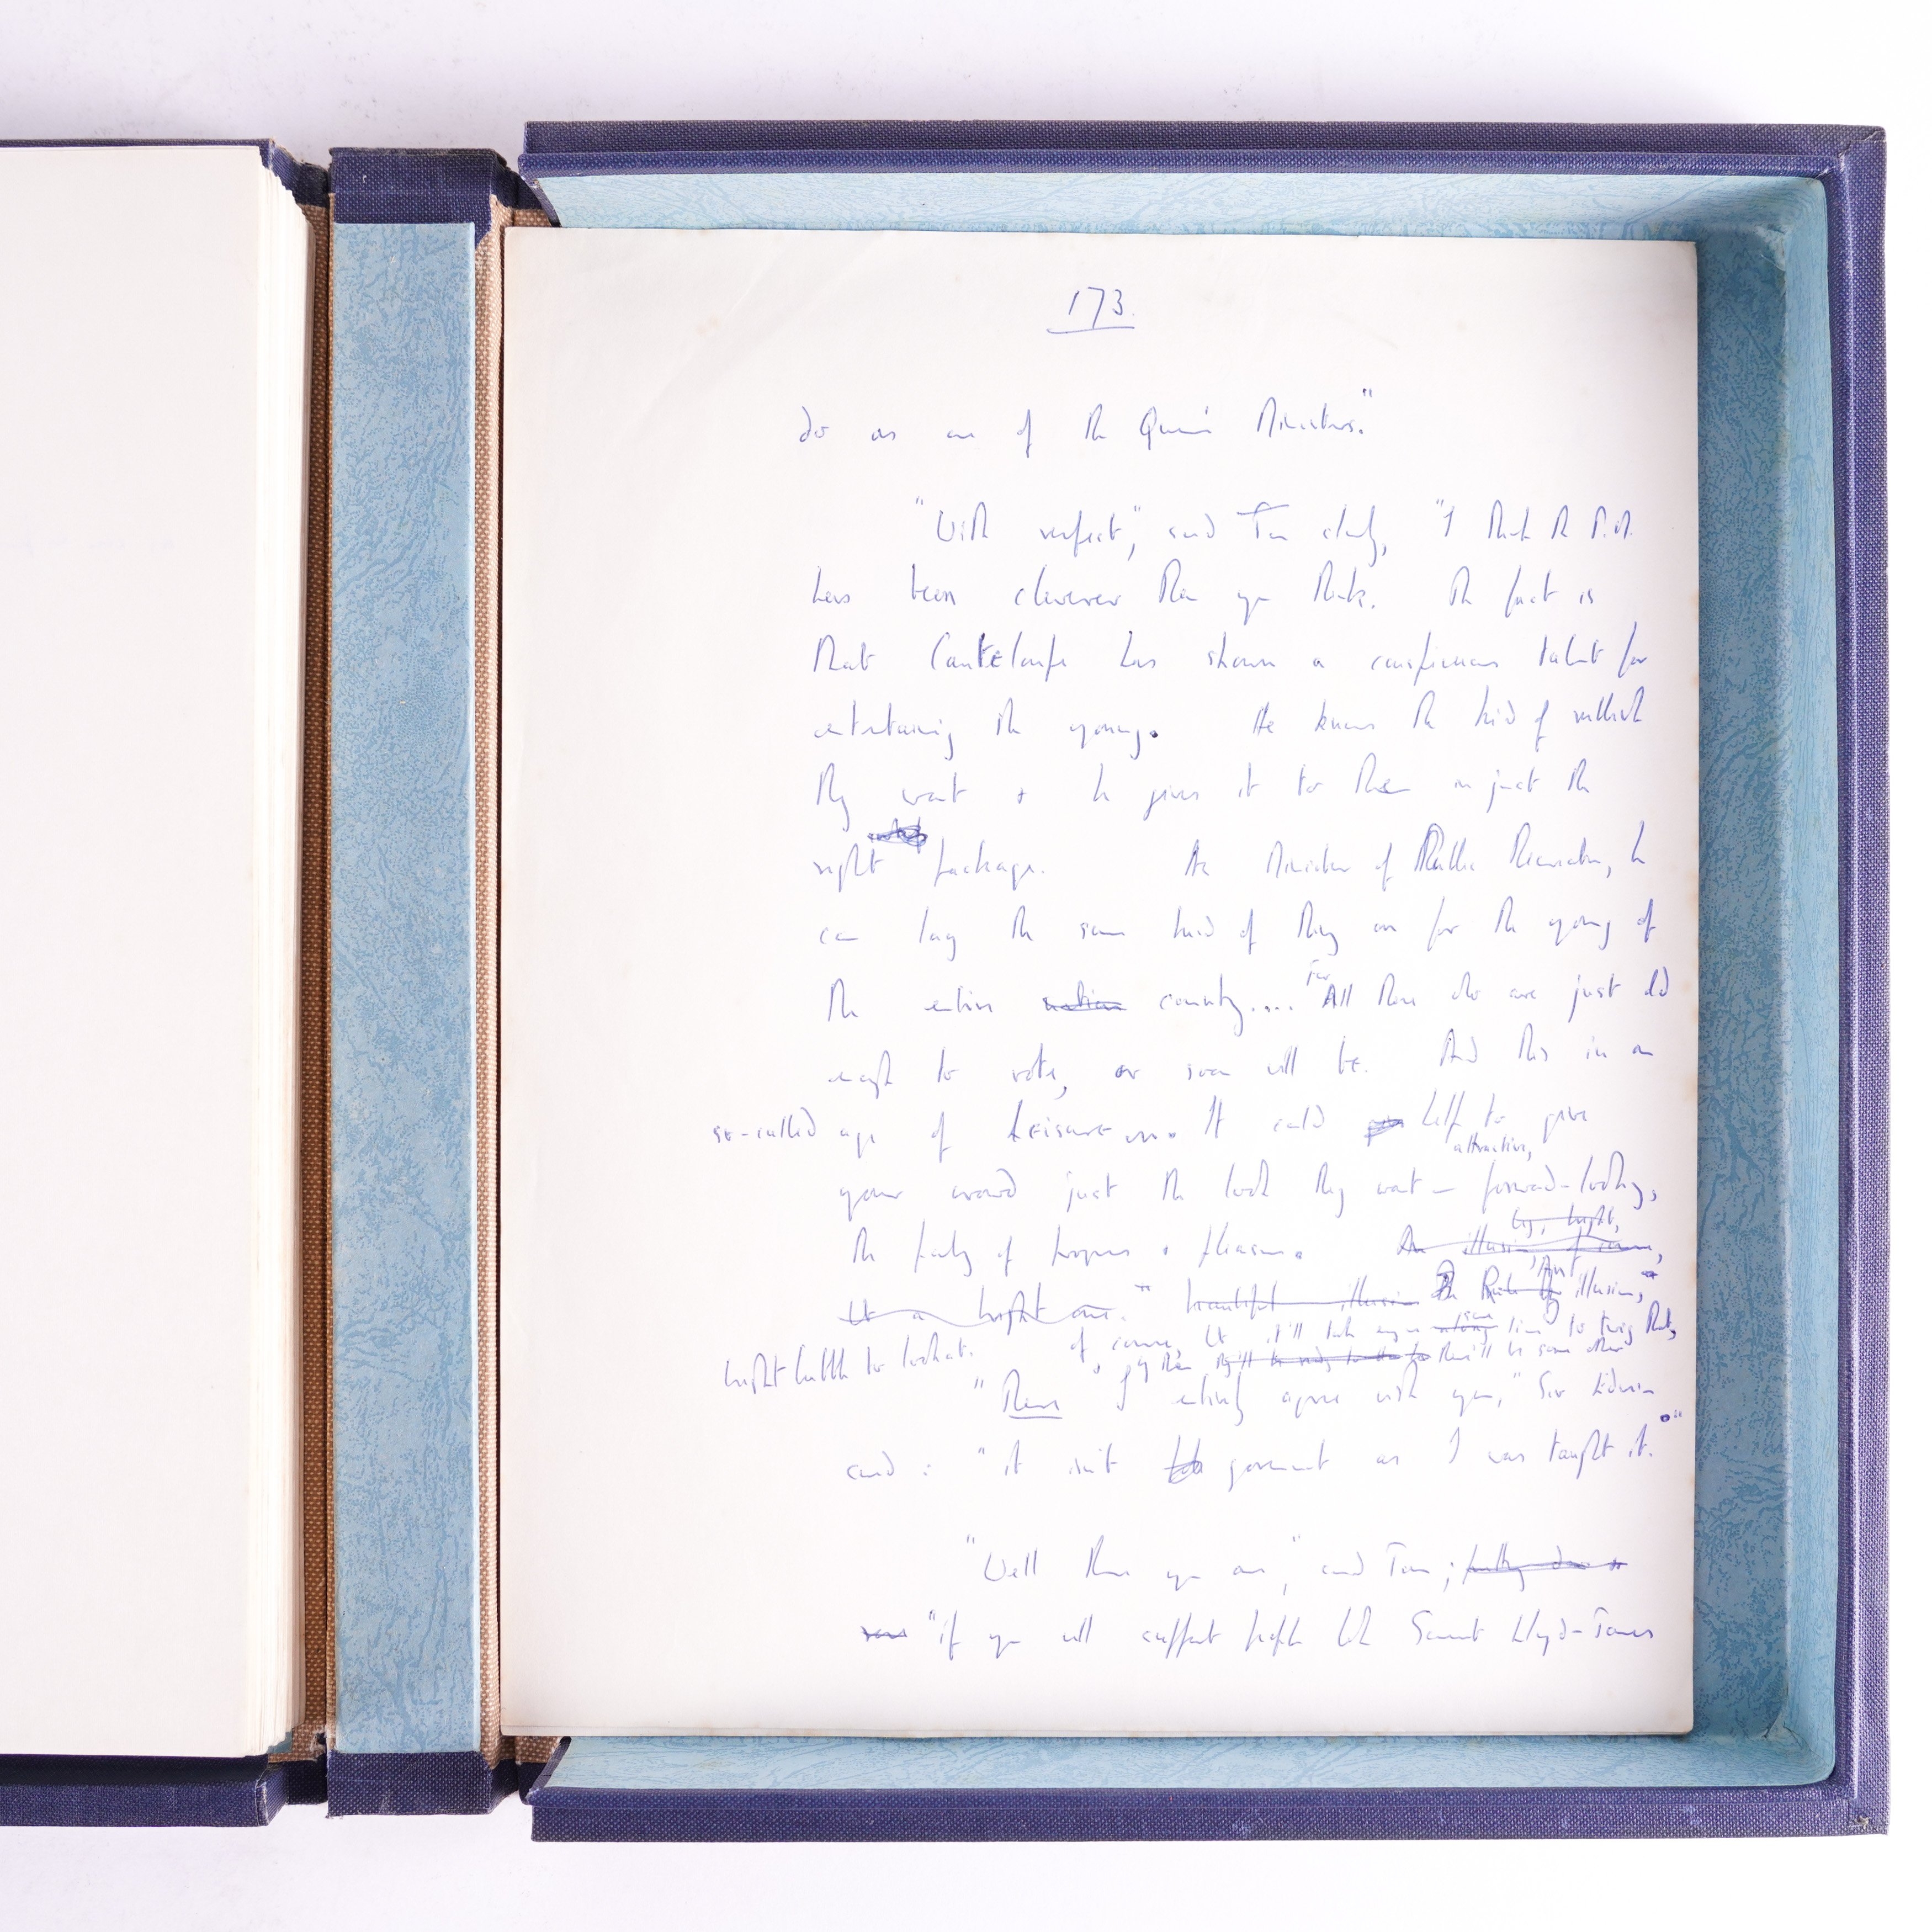 173.
do as one of the Queen's Ministers."
"With respect," said Tom , "I think the P.M.
has been cleverer than you think. The fact is
that Canteloupe has shown a conspicuous talent for
entertaining the young. He knows the kind of rubbish
they want + he gives it to them in just the
right package. As Minister of Public Recreation, he
can lay the same kind of thing on for the young of
the entire nation country.... For All those who are just old
enough to vote, or soon will be. And this in an
so-called age of leisure It could help to give
attractive,
your crowd just the look they want – forward-looking,
big, bright,
the party of progress + pleasure. An illusion, of course,
but a bright one." beautiful illusion illusion,
of course, but it'll take time to twig that,
bright bubble to look at.
by then there'll be some other
"There I entirely agree with you," Sir Edwin
said : "it isn't government as I was taught it."
"Well there you are," said Tom;
"if you will support people like Somerset Lloyd-James